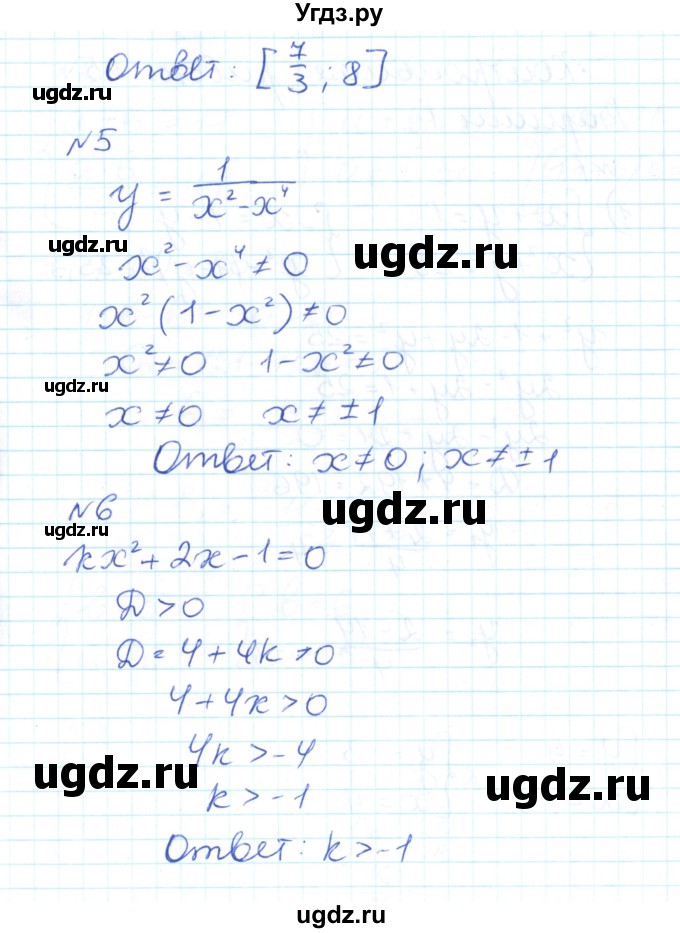 Угдз.ру
Ответ: [7/3; 8]
ugdz.ru
№5
y = 1/(x² - x⁴)
ugdz.ru
x² - x⁴ ≠ 0
ugdz.ru
x²(1 - x²) ≠ 0
x² ≠ 0 1 - x² ≠ 0
ugdz.ru
x ≠ 0 x ≠ ± 1
Ответ: x ≠ 0; x ≠ ± 1
№6
ugdz.ru
ugdz.ru
kx² + 2x - 1 = 0
Д > 0
Д = 4 + 4k > 0
4 + 4k > 0
4k > -4
ugdz.ru
k > -1
ugdz.ru
Ответ: k > -1
ugdz.ru